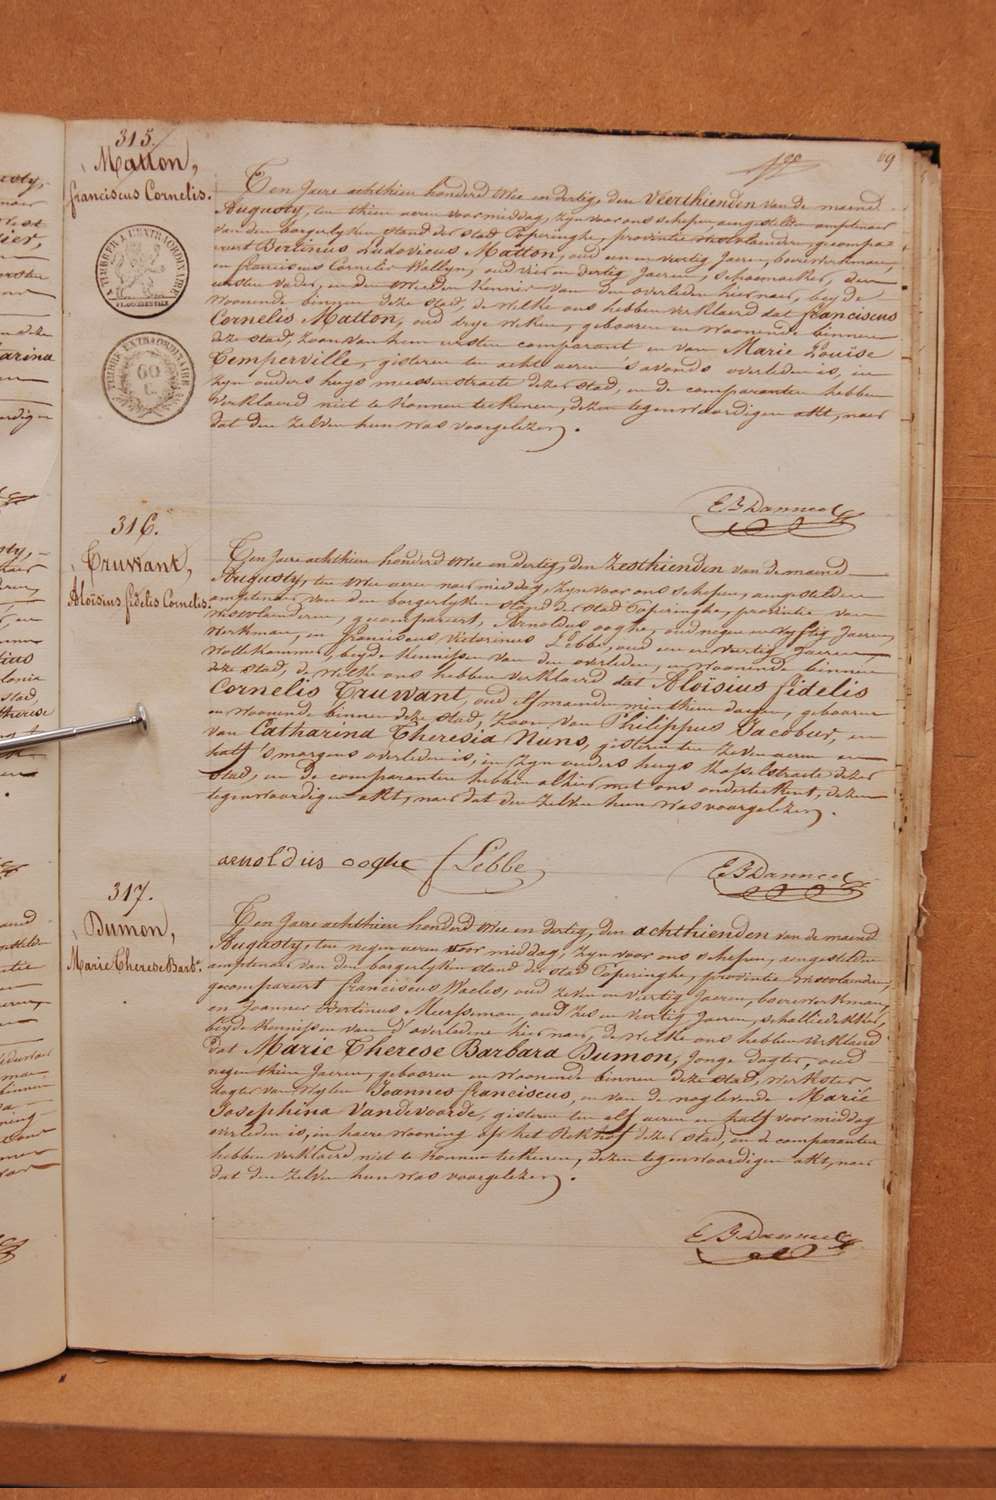 69
315.
Matton,
franciscus Cornelis.
Ten Jaere achthien honderd twee en dertig, den Vierthienden van de maend
Augusty, ten thien ueren voor middag, zyn voor ons schepen, aengestelden amptenaer
van den borgerlyken stand der stad Poperinghe, provintie westvlaenderen, gecompa-
reert Bertinus Ludovicus Matton, oud een en viertig Jaeren, boerwerkman,
en franciscus Cornelis Wallyn, oud vier en dertig Jaeren, schoemaeker, den
eersten vader, en den tweeden kennis van den overleden hier naer, beyde
woonende binnen deze stad, de welke ons hebben verklaerd dat franciscus
Cornelis Matton, oud drye weken, gebooren en woonende binnen
deze stad, zoon van hem eersten comparant en van Marie Louise
Temperville, gisteren ten acht ueren 's avonds overleden is, in
zyn ouders huys meessenstraete dezer stad, en de comparanten hebben
verklaerd niet te konnen teekenen, dezen tegenwoordigen akt, naer
dat den zelven hun was voorgelezen.
TIMBRE A L'EXTRAORDINAIRE
FL. OCCIDENTALE
TIMBRE EXTRAORDINAIRE
60
C.
316.
Truwant,
Aloïsius fidelis Cornelis.
Ten Jaere achthien honderd twee en dertig, den Zesthienden van de maend
Augusty, ten twee ueren naer middag, zyn voor ons schepen, aengestelden
amptenaer van den borgerlyken stand der stad Poperinghe, provintie van
westvlaenderen, gecompareert, Arnoldus ooghe, oud negen en vyftig Jaeren,
werkman, en franciscus victorinus Lebbe, oud een en viertig Jaeren,
wollekammer, beyde kennissen van den overleden, en woonende binnen
deze stad, de welke ons hebben verklaerd dat Aloïsius fidelis
Cornelis Truwant, oud elf maenden min thien daegen, gebooren
en woonende binnen deze stad, zoon van Philippus Jacobus, en
van Catharina Theresia Nuns, gisteren ten zeven ueren en
half 's morgens overleden is, in zyn ouders huys Kasselstraete dezer
stad, en de comparanten hebben alhier met ons onderteekent, dezen
tegenwoordigen akt, naer dat den zelven hun was voorgelezen.
arnoldus ooghe f Lebbe
317.
Dumon,
Marie Therese Barbe.
Ten Jaere achthien honderd twee en dertig, den achthienden van de maend
Augusty, ten negen ueren voor middag, zyn voor ons schepen, aengestelden
amptenaer van den borgerlyken stand der stad Poperinghe, provintie westvlaenderen,
gecompareert franciscus Waeles, oud zeven en viertig Jaeren, boerwerkman,
en Joannes Bertinus Meersseman, oud zes en viertig Jaeren, schalliedekker,
beyde kennissen van d'overledene hier naer, de welke ons hebben verklaerd
dat Marie Therese Barbara Dumon, Jonge dogter, oud
negenthien Jaeren, gebooren en woonende binnen deze stad, werkster
dogter van wylen Joannes franciscus, en van de noglevende Marie
Josephina Vandevoorde, gisteren ten elf ueren en half voor middag
overleden is, in haere wooning op het Rekhof dezer stad, en de comparanten
hebben verklaerd niet te konnen teekenen, dezen tegenwoordigen akt, naer
dat den zelven hun was voorgelezen.